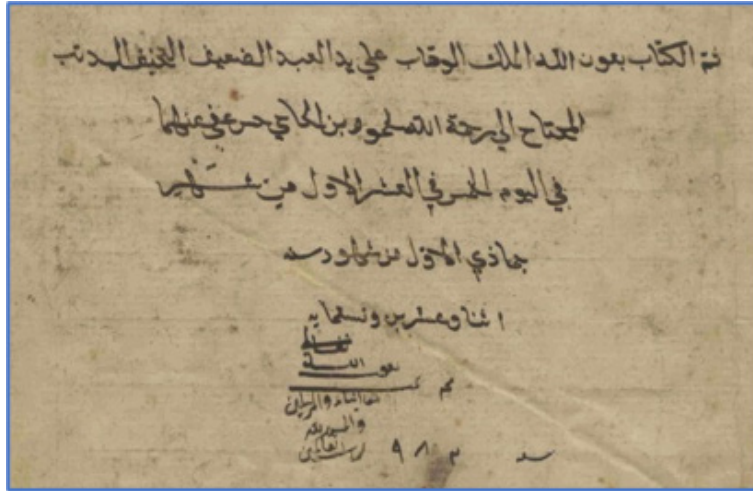 تم الكتاب بعون الله الملك الوهاب علي يد العبد الضعيف النحيف المذنب
المحتاج الي رحمة الله محمود بن الحاجي حسن عفي عنهما
في اليوم الخمس في العشر الاول من شهر
جماذي الاول من شهور سنه
اثنا وعشرين وتسعمايه
بعون الله
تم تمت
والحمد لله
رب العالمين
سنه